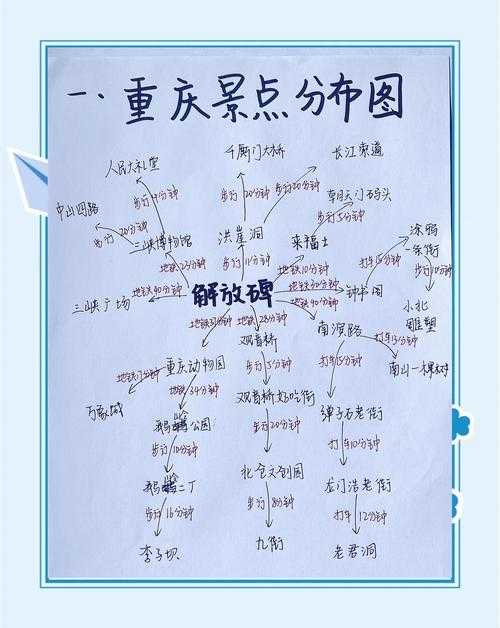 一.重庆景点分布图
人民大礼堂
千厮门大桥
长江索道
中山四路
步行4分钟
步行20分钟
步行20分钟
朝天门码头
步行20分钟
三峡博物馆
洪崖洞
来福士
步行5分钟
涂鸦
一条街
地铁23分钟
步行11分钟
地铁10分钟
打车15分钟
三峡广场
地铁40分钟
解放碑
地铁30分钟
钟书阁
步行10分钟
地铁40分钟
小北
雕塑
地铁28分钟
观音桥
南滨路
打车13分钟
重庆动物园
步行5分钟
打车15分钟
南山一棵树
地铁34分钟
万象城
观音桥好吃街
弹子石老街
鹅岭公园
步行10分钟
步行20分钟
打车10分钟
鹅岭二厂
北仓文创园
龙门浩老街
步行16分钟
步行8分钟
打车12分钟
李子坝
九街
老君洞